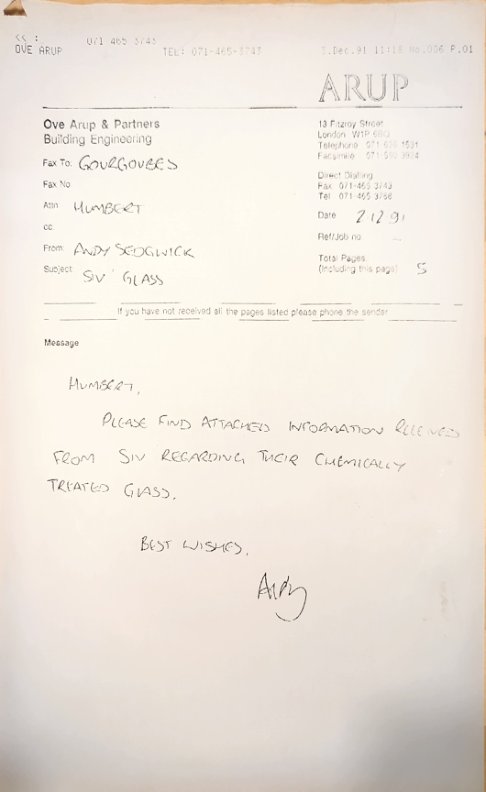 << :
071 465 3743
OVE ARUP
TEL: 071-465-3743
3.Dec.91 11:16 No.006 P.01
ARUP
Ove Arup & Partners
Building Engineering
13 Fitzroy Street
London W1P 6BQ
Telephone 071 636 1531
Facsimile 071 580 3924
Fax To: GOURGOUBES
Direct Dialling
Fax 071-465 3743
Tel 071-465 3756
Fax No
Attn HUMBERT
Date 2 12 91
cc.
Ref/Job no
From: ANDY SEDGWICK
Total Pages
(including this page) 5
Subject: SIV GLASS
If you have not received all the pages listed please phone the sender
Message
HUMBERT,
PLEASE FIND ATTACHED INFORMATION RECEIVED
FROM SIV REGARDING THEIR CHEMICALLY
TREATED GLASS.
BEST WISHES,
Andy